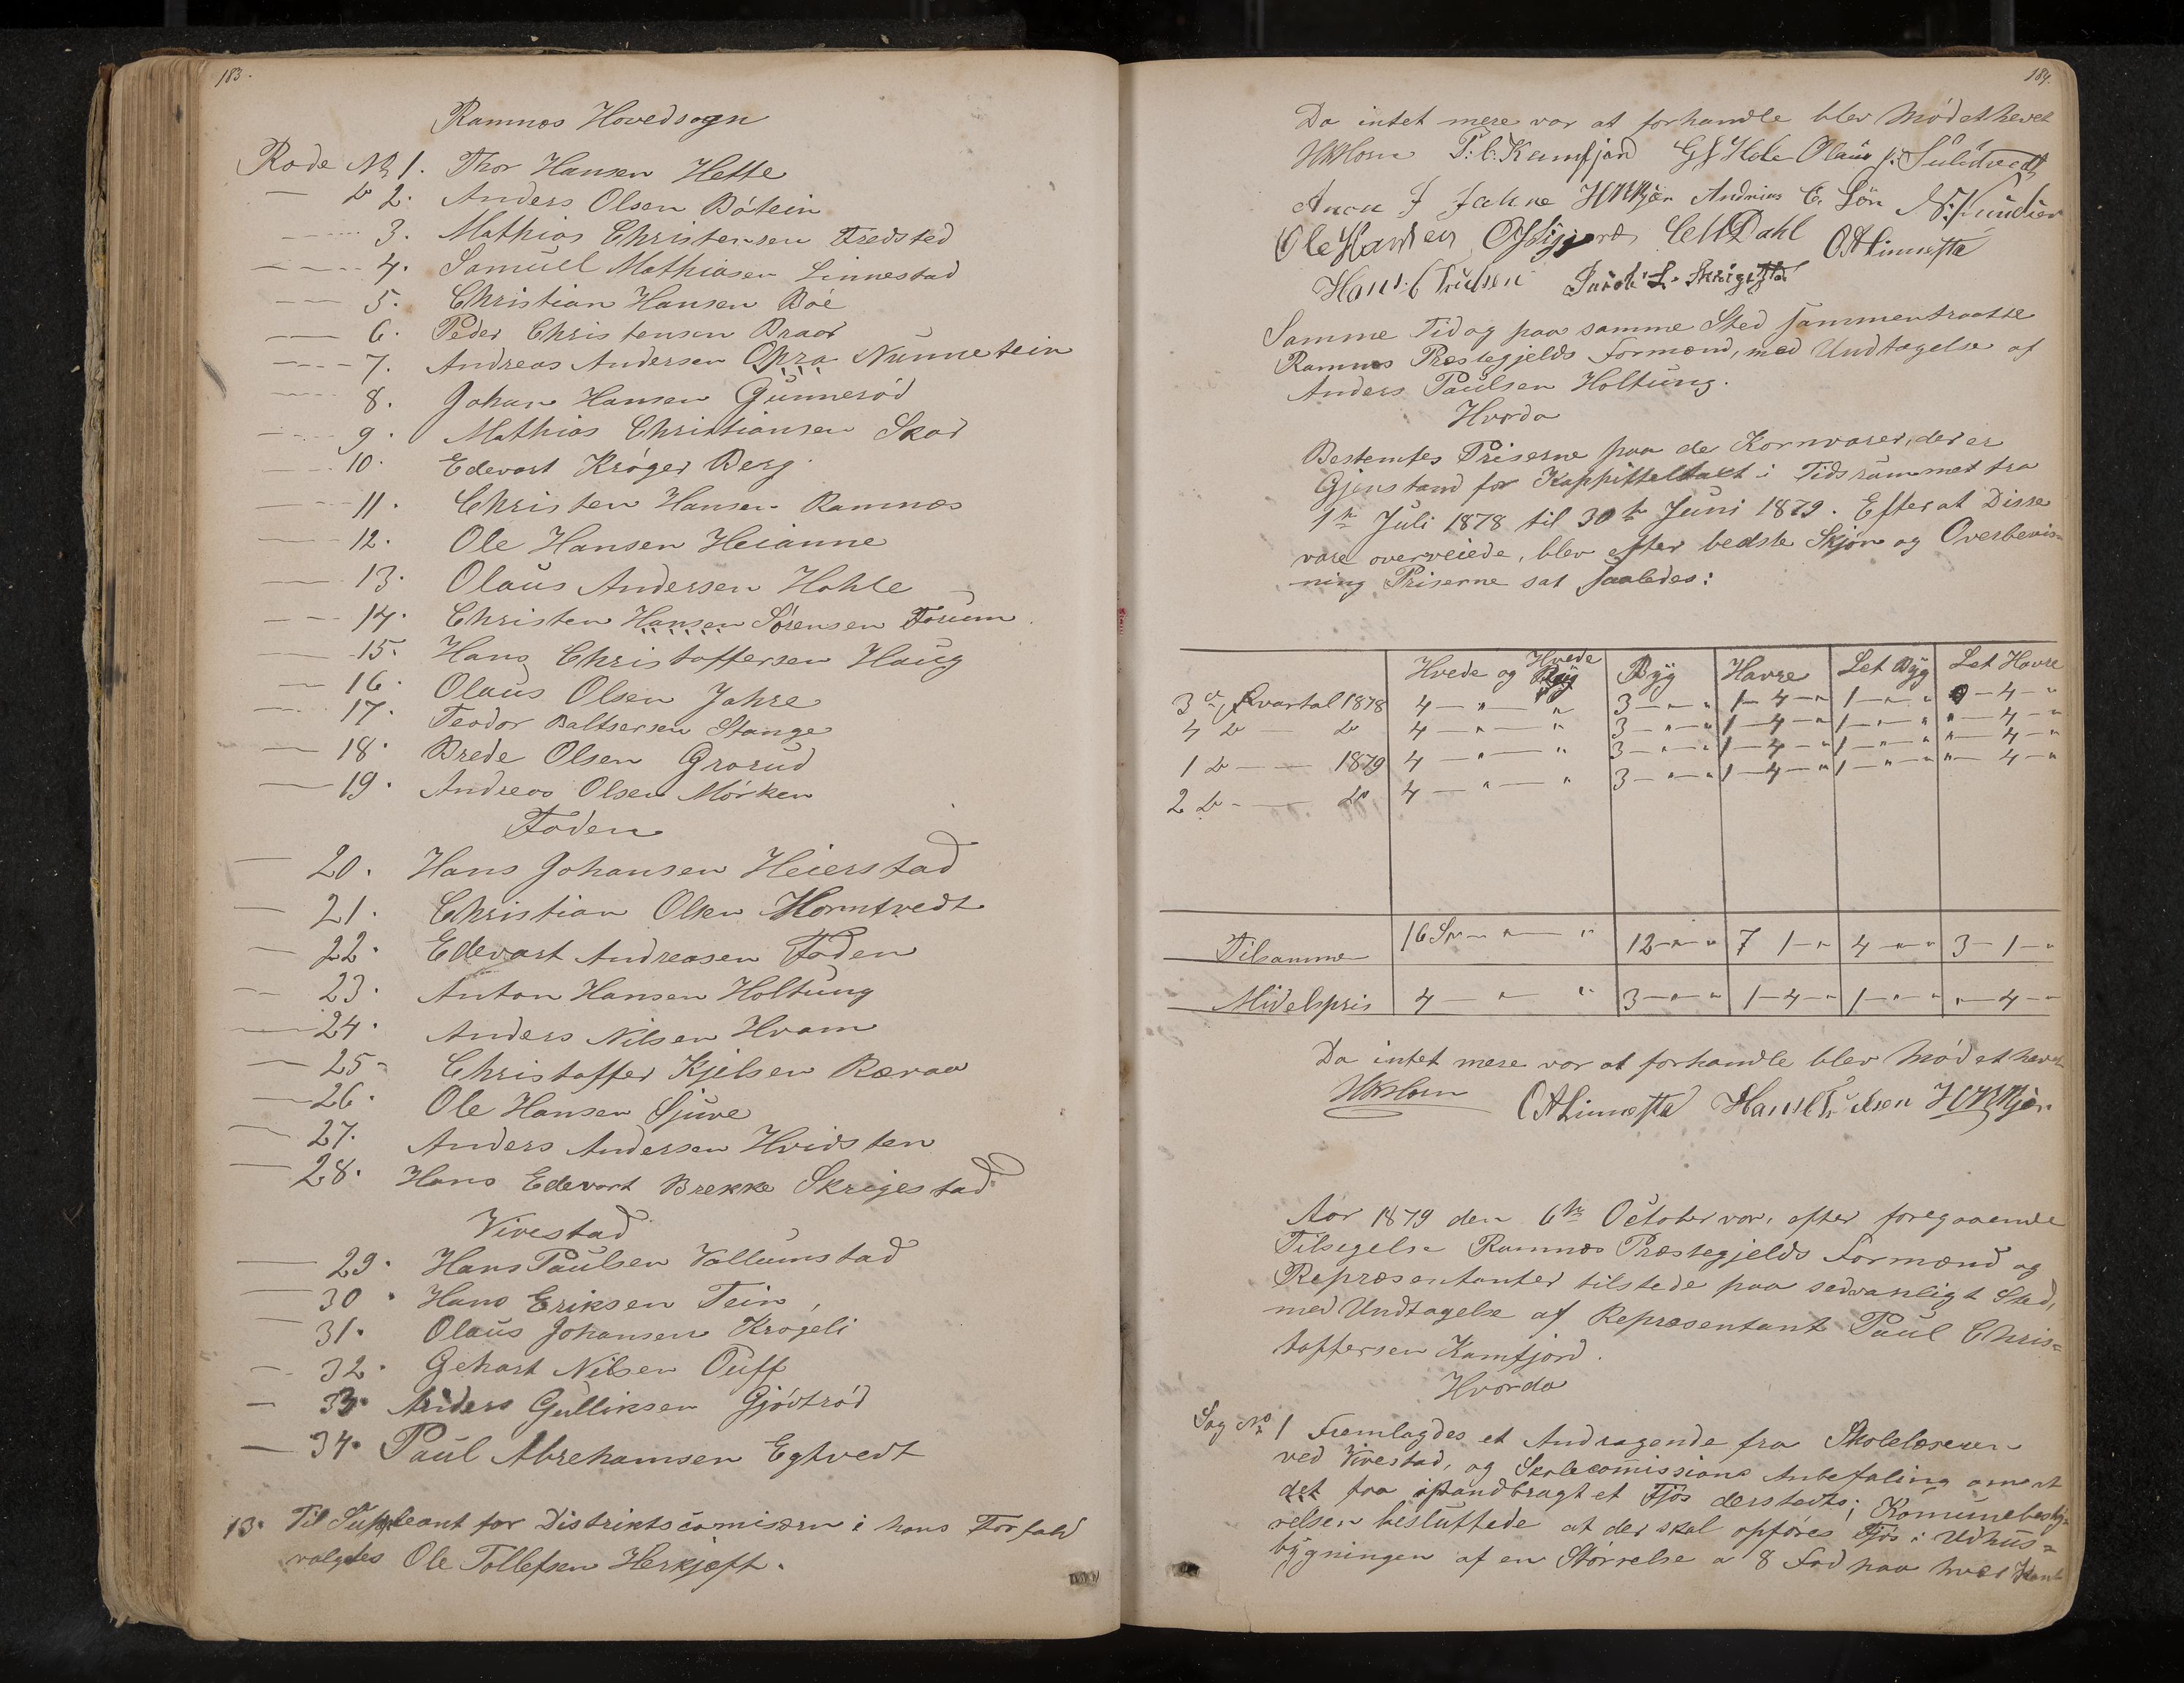 183.
Ramnæs Hovedsogn
Rode № 1. Thor Hansen Hette
— D 2. Anders Olsen Bötein
— 3. Mathias Christensen Fredsted
— 4. Samuel Mathiasen Linnestad
— 5. Christian Hansen Böe
— 6. Peder Christensen Braar
— 7. Andreas Andersen Opra Nunnetein
— 8. Johan Hansen Gunneröd
— 9. Mathias Christiansen Skar
— 10. Edevart Kröger Berg
— 11. Christen Hansen Ramnæs
— 12. Ole Hansen Heianne
— 13. Olaus Andersen Hohle
— 14. Christen Hansen Sörensen Forum
— 15. Hans Christoffersen Haug
— 16. Olaus Olsen Jahre
— 17. Teodor Baltsersen Stange
— 18. Brede Olsen Grorud
— 19. Andreas Olsen Mörken
Foden
— 20. Hans Johansen Heierstad
— 21. Christian Olsen Horntvedt
— 22. Edevart Andreasen Foden
— 23. Anton Hansen Holtung
— 24. Anders Nilsen Hvam
— 25 - Christoffer Kjelsen Rævaa
— 26. Ole Hansen Sjuve
— 27. Anders Andersen Hvidsten
— 28. Hans Edevart Brekke Skrigestad
Vivestad
— 29. Hans Paulsen Vallumstad
— 30. Hans Eriksen Tein
— 31. Olaus Johansen Krogeli
— 32. Gehart Nilsen Ouff
— 33. Anders Gulliksen Gjövtröd
— 34. Paul Abrehamsen Egtvedt
13. Til Supleant for Distriktscomisæren i hans Forfald
valgtes Ole Tollefsen Herkjæft.
184.
Da intet mere var at forhandle blev Mödet hevet
HKHorn P. C. Kamfjord Olaus
Jahre Andrias C. Lön
Ole Hansen CMDahl OALinnesta
Hans C Trulsen Jacob L. Skrigestad
Samme Tid og paa samme Sted sammentraatte
Ramnæs Præstegjelds Formænd, med Undtagelse af
Anders Paulsen Holtung.
Hvorda
Bestemtes Priserne paa de Kornvarer, der er
Gjenstand for Kappitteltakt i Tidsrummet fra
1te Juli 1878 til 30te Juni 1879. Efterat Disse
vare overveiede, blev efter bedste Skjön og Overbevis-
ning Priserne sat saaledes:
Hvede og Hvede Byg Havre Let Byg Let Havre
3de Kvartal 1878 4 — " — " 3 — " — " 1 — 4 — " 1 — " — " 0 — 4 — "
4 D — D 4 — " — " 3 — " — " 1 — 4 — " 1 — " — " " — 4 — "
1 D — 1879 4 — " — " 3 — " — " 1 — 4 — " 1 — " — " " — 4 — "
2 D — D 4 — " — " 3 — " — " 1 — 4 — " 1 — " — " " — 4 — "
Tilsammen 16 — " — " 12 — " — " 7 1 — " 4 — " — " 3 — 1 — "
Midelspris 4 — " — " 3 — " — " 1 — 4 — " 1 — " — " " — 4 — "
Da intet mere var at forhandle blev Mödet hævet
HKHorn OALinnesta Hans C Trulsen
Aar 1879 den 6te October var, efter foregaaende
Tilsigelse Ramnæs Præstegjelds Formænd og
Repræsentanter tilstede paa sedvanligt Sted,
med Undtagelse af Repræsentant Paul Chris=
toffersen Kamfjord.
Hvorda
Sag № 1 Fremlagdes et Andragende fra Skolelæreren
ved Vivestad, og Skolecommissions Anbefaling om at
det faa istandbragt et Fjös dersteds; Komunebesty-
relsen besluttede at der skal opföres Fjös i Udhus=
bygningen af en Störrelse a 8 Fod paa hver Kant